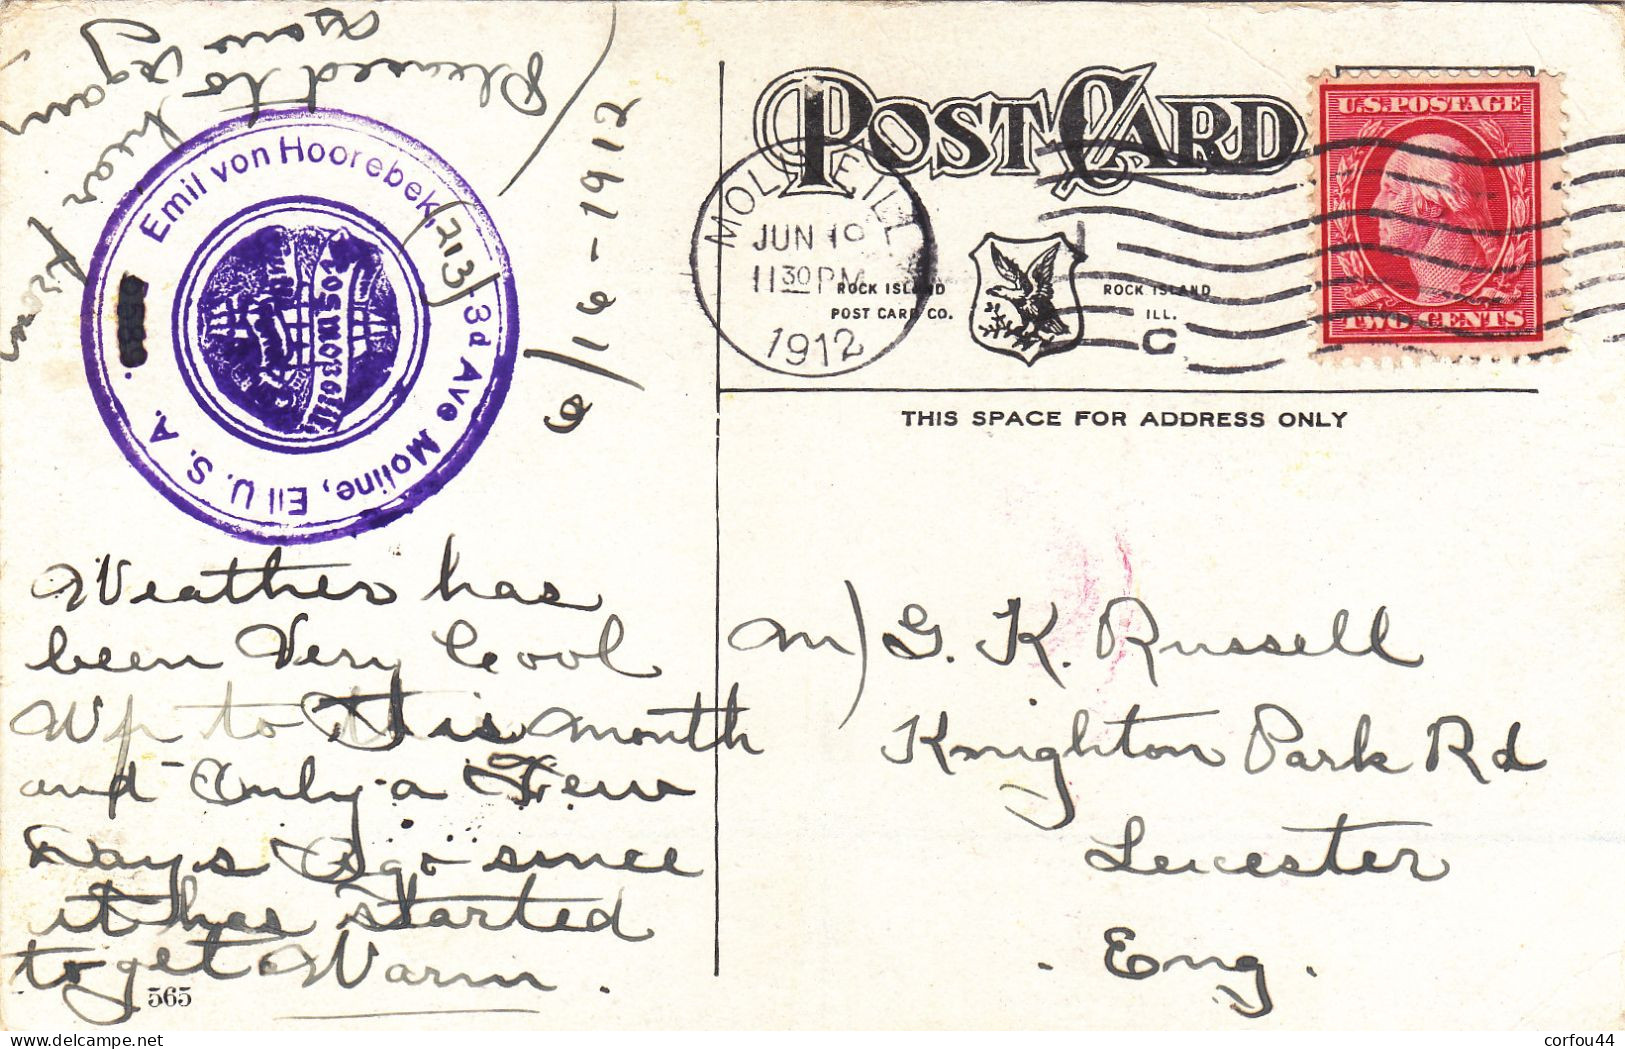 POST CARD
U.S. POSTAGE
TWO CENTS
MOLINE, ILL.
JUN 19
11 30 PM
1912
ROCK ISLAND
POST CARD CO.
ROCK ISLAND
ILL.
C
THIS SPACE FOR ADDRESS ONLY
Pleased to hear from
you again
6/16-1912
Emil von Hoorebek, 213 - 3d Ave Moline, Ell U. S. A.
COSMOPOLITAN
Weather has
been Very Cool
Up to this month
and Only a Few
Days Ago since
it has Started
to get Warm.
565
M) G. K. Russell
Knighton Park Rd
Leicester
Eng.
corfou44